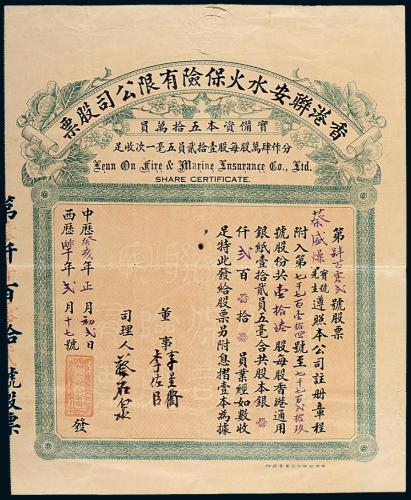 香港聯安水火保險有限公司股票
實備資本五拾萬員
分作肆萬股每股壹拾貳員五毫一次收足
Lenn On Fire & Marine Insurance Co., Ltd.
SHARE CERTIFICATE.
號股票
先生遵照本公司註冊章程
附入第七千七百壹拾四號至七千七百貳拾玖
號股份共壹拾陸股每股香港通用
銀紙壹拾貳員五毫合共股本銀
仟貳百拾員業經如數收
足特此發給股票另附息摺壹本為據
董事
司理人
中曆癸亥年正月初貳日
西曆年貳月十七號
發
第仟百拾號股票